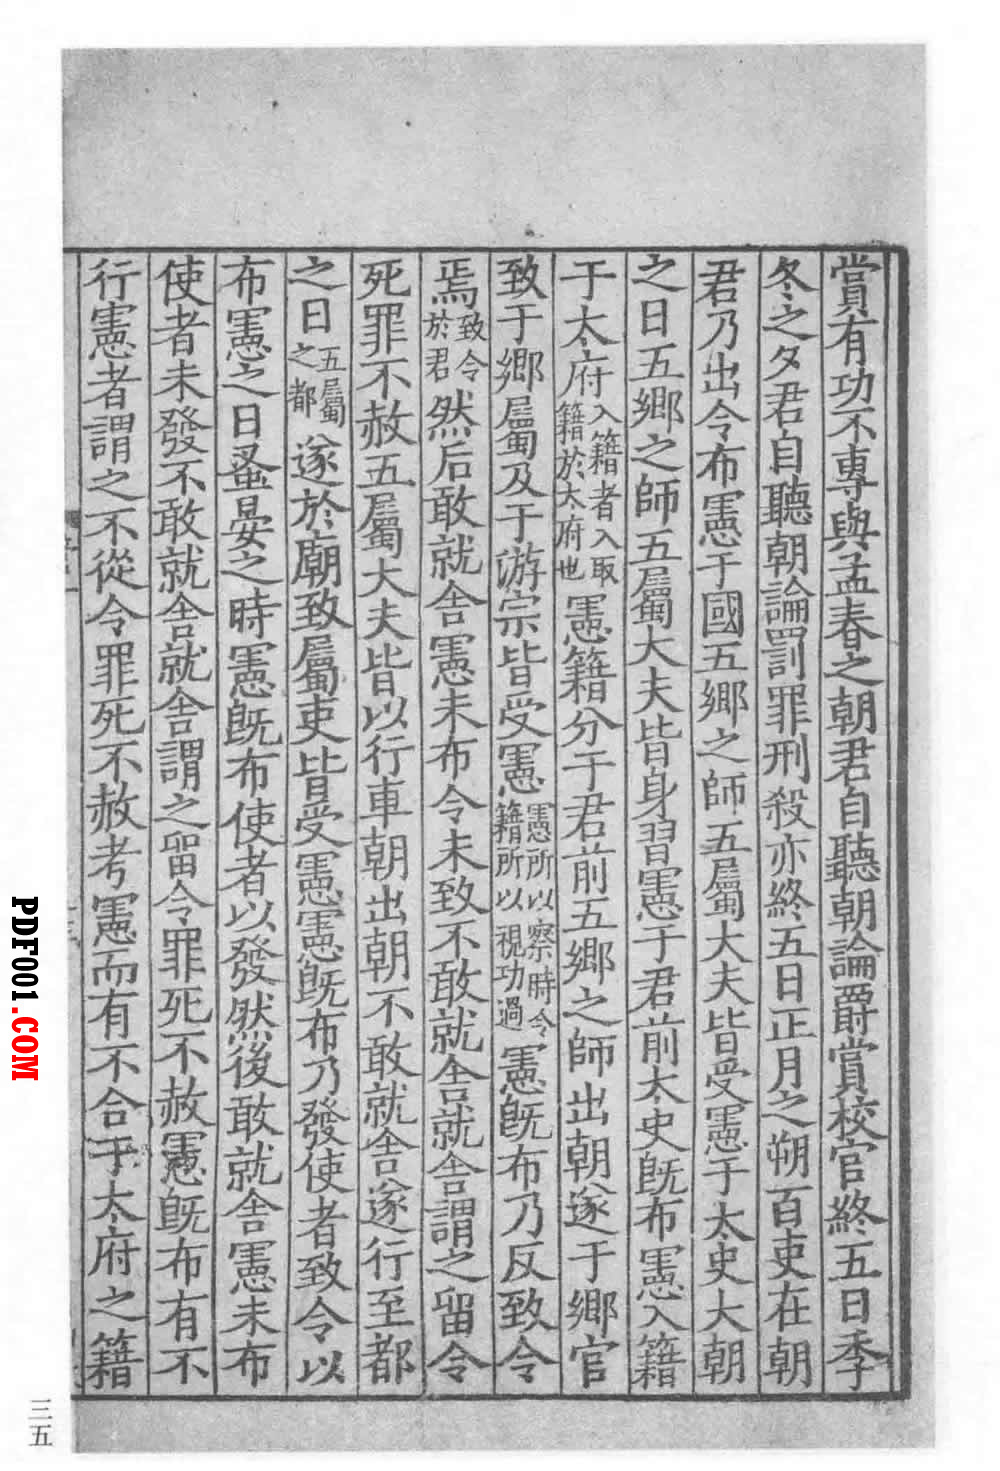 賞有功不專與孟春之朝君自聽朝論爵賞校官終五日季
冬之夕君自聽朝論罰罪刑殺亦終五日正月之朔百吏在朝
君乃出令布憲于國五鄉之師五屬大夫皆受憲于太史大朝
之日五鄉之師五屬大夫皆身習憲于君前太史旣布憲入籍
于太府入籍者入取籍於太府也憲籍分于君前五鄉之師出朝遂于鄉官
致于鄉屬及于游宗皆受憲憲所以察時令籍所以視功過憲旣布乃反致令
焉致令於君然后敢就舍憲未布令未致不敢就舍就舍謂之留令
死罪不赦五屬大夫皆以行車朝出朝不敢就舍遂行至都
之日五屬之都遂於廟致屬吏皆受憲憲旣布乃發使者致令以
布憲之日蚤晏之時憲旣布使者以發然後敢就舍憲未布
使者未發不敢就舍就舍謂之留令罪死不赦憲旣布有不
行憲者謂之不從令罪死不赦考憲而有不合于太府之籍
三五
PDF001.COM